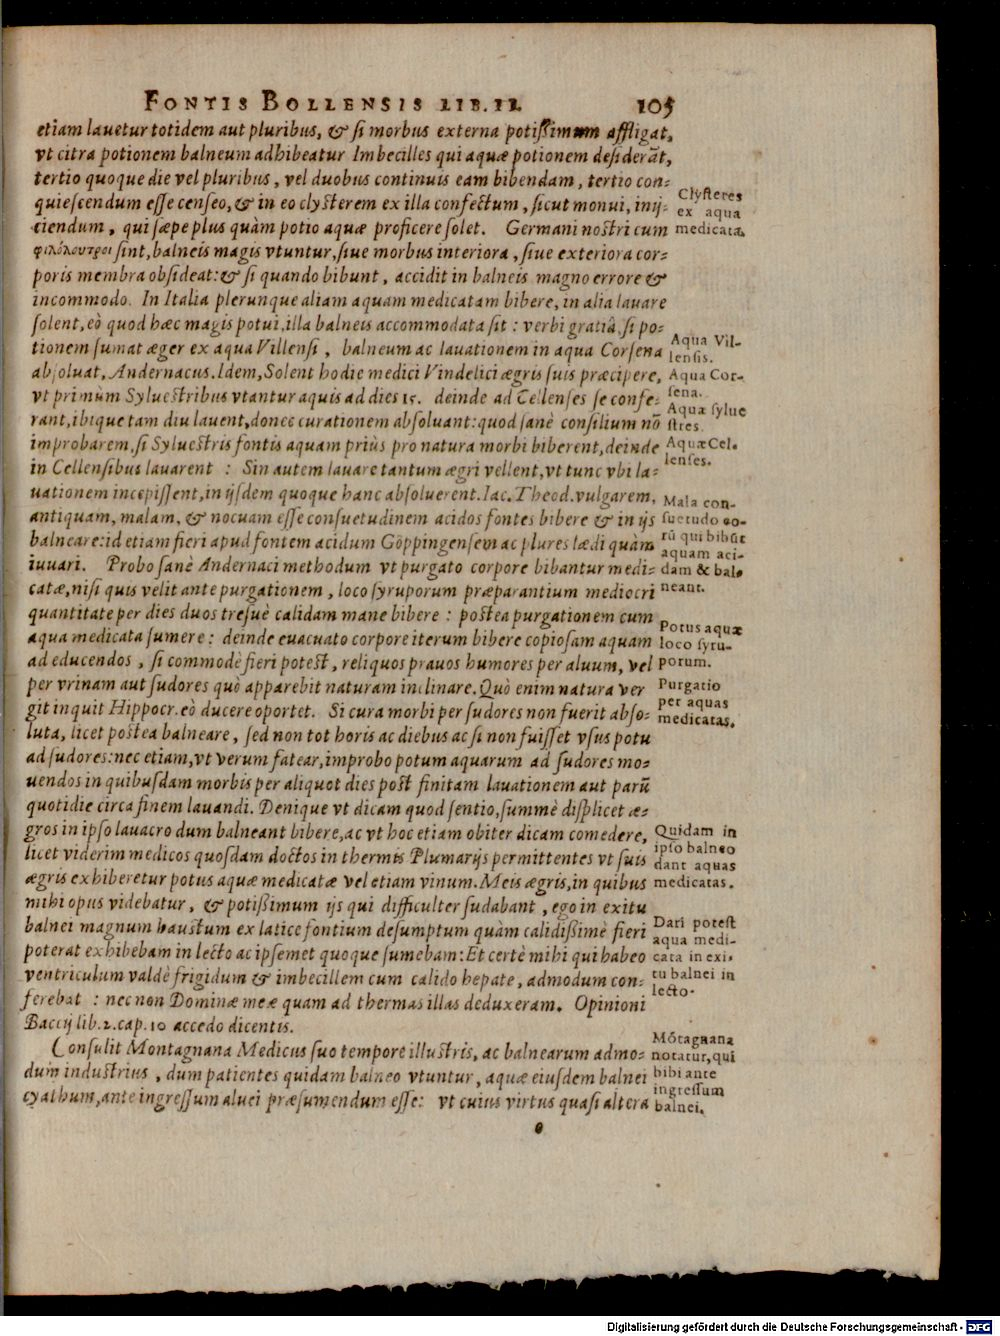 FONTIS BOLLENSIS LIB.II. 105
etiam lauetur totidem aut pluribus, & si morbus externa potißimum affligat,
vt citra potionem balneum adhibeatur Imbecilles qui aquæ potionem desiderāt,
tertio quoque die vel pluribus, vel duobus continuis eam bibendam, tertio con-
quiescendum esse censeo, & in eo clysterem ex illa confectum, sicut monui, inij-
ciendum, qui sæpe plus quàm potio aquæ proficere solet. Germani nostri cum
φιλόλουτροι sint, balneis magis vtuntur, siue morbus interiora, siue exteriora cor-
poris membra obsideat: & si quando bibunt, accidit in balneis magno errore &
incommodo. In Italia plerunque aliam aquam medicatam bibere, in alia lauare
solent, eò quod hæc magis potui, illa balneis accommodata sit: verbi gratiâ, si po-
tionem sumat æger ex aqua Villensi, balneum ac lauationem in aqua Corsena
absoluat, Andernacus. Idem, Solent hodie medici Vindelici ægris suis præcipere,
vt primùm Syluestribus vtantur aquis ad dies 15. deinde ad Cellenses se confe-
rant, ibique tam diu lauent, donec curationem absoluant: quod sanè consilium nō
improbarem, si Syluestris fontis aquam priùs pro natura morbi biberent, deinde
in Cellensibus lauarent: Sin autem lauare tantum ægri vellent, vt tunc vbi la-
uationem incepissent, in ijsdem quoque hanc absoluerent. Iac. Theod. vulgarem,
antiquam, malam, & nocuam esse consuetudinem acidos fontes bibere & in ijs
balneare: id etiam fieri apud fontem acidum Göppingensem ac plures lædi quàm
iuuari. Probo sanè Andernaci methodum vt purgato corpore bibantur medi-
catæ, nisi quis velit ante purgationem, loco syruporum præparantium mediocri
quantitate per dies duos tresuè calidam mane bibere: postea purgationem cum
aqua medicata sumere: deinde euacuato corpore iterum bibere copiosam aquam
ad educendos, si commodè fieri potest, reliquos prauos humores per aluum, vel
per vrinam aut sudores quò apparebit naturam inclinare. Quò enim natura ver
git inquit Hippocr. eò ducere oportet. Si cura morbi per sudores non fuerit abso-
luta, licet postea balneare, sed non tot horis ac diebus ac si non fuisset vsus potu
ad sudores: nec etiam, vt verum fatear, improbo potum aquarum ad sudores mo-
uendos in quibusdam morbis per aliquot dies post finitam lauationem aut parū
quotidie circa finem lauandi. Denique vt dicam quod sentio, summè displicet æ-
gros in ipso lauacro dum balneant bibere, ac vt hoc etiam obiter dicam comedere,
licet viderim medicos quosdam doctos in thermis Plumarijs permittentes vt suis
ægris exhiberetur potus aquæ medicatæ vel etiam vinum. Meis ægris, in quibus
mihi opus videbatur, & potißimum ijs qui difficulter sudabant, ego in exitu
balnei magnum haustum ex latice fontium desumptum quàm calidißimè fieri
poterat exhibebam in lecto ac ipsemet quoque sumebam: Et certè mihi qui habeo
ventriculum valdè frigidum & imbecillem cum calido hepate, admodum con-
ferebat: nec non Dominæ meæ quam ad thermas illas deduxeram. Opinioni
Baccij lib. 2. cap. 10 accedo dicentis.
Consulit Montagnana Medicus suo tempore illustris, ac balnearum admo-
dum industrius, dum patientes quidam balneo vtuntur, aquæ eiusdem balnei
cyathum, ante ingressum aluei præsumendum esse: vt cuius virtus quasi altera
o
Clysteres
ex aqua
medicata.
Aqua Vil-
lensis.
Aqua Cor-
sena.
Aquæ sylue
stres.
Aquæ Cel-
lenses.
Mala con-
suetudo eo-
rū qui bibūt
aquam aci-
dam & bal-
neant.
Potus aquæ
loco syru-
porum.
Purgatio
per aquas
medicatas.
Quidam in
ipso balneo
dant aquas
medicatas.
Dari potest
aqua medi-
cata in exi-
tu balnei in
lecto.
Mōtagnana
notatur, qui
bibi ante
ingressum
balnei.
Digitalisierung gefördert durch die Deutsche Forschungsgemeinschaft - DFG